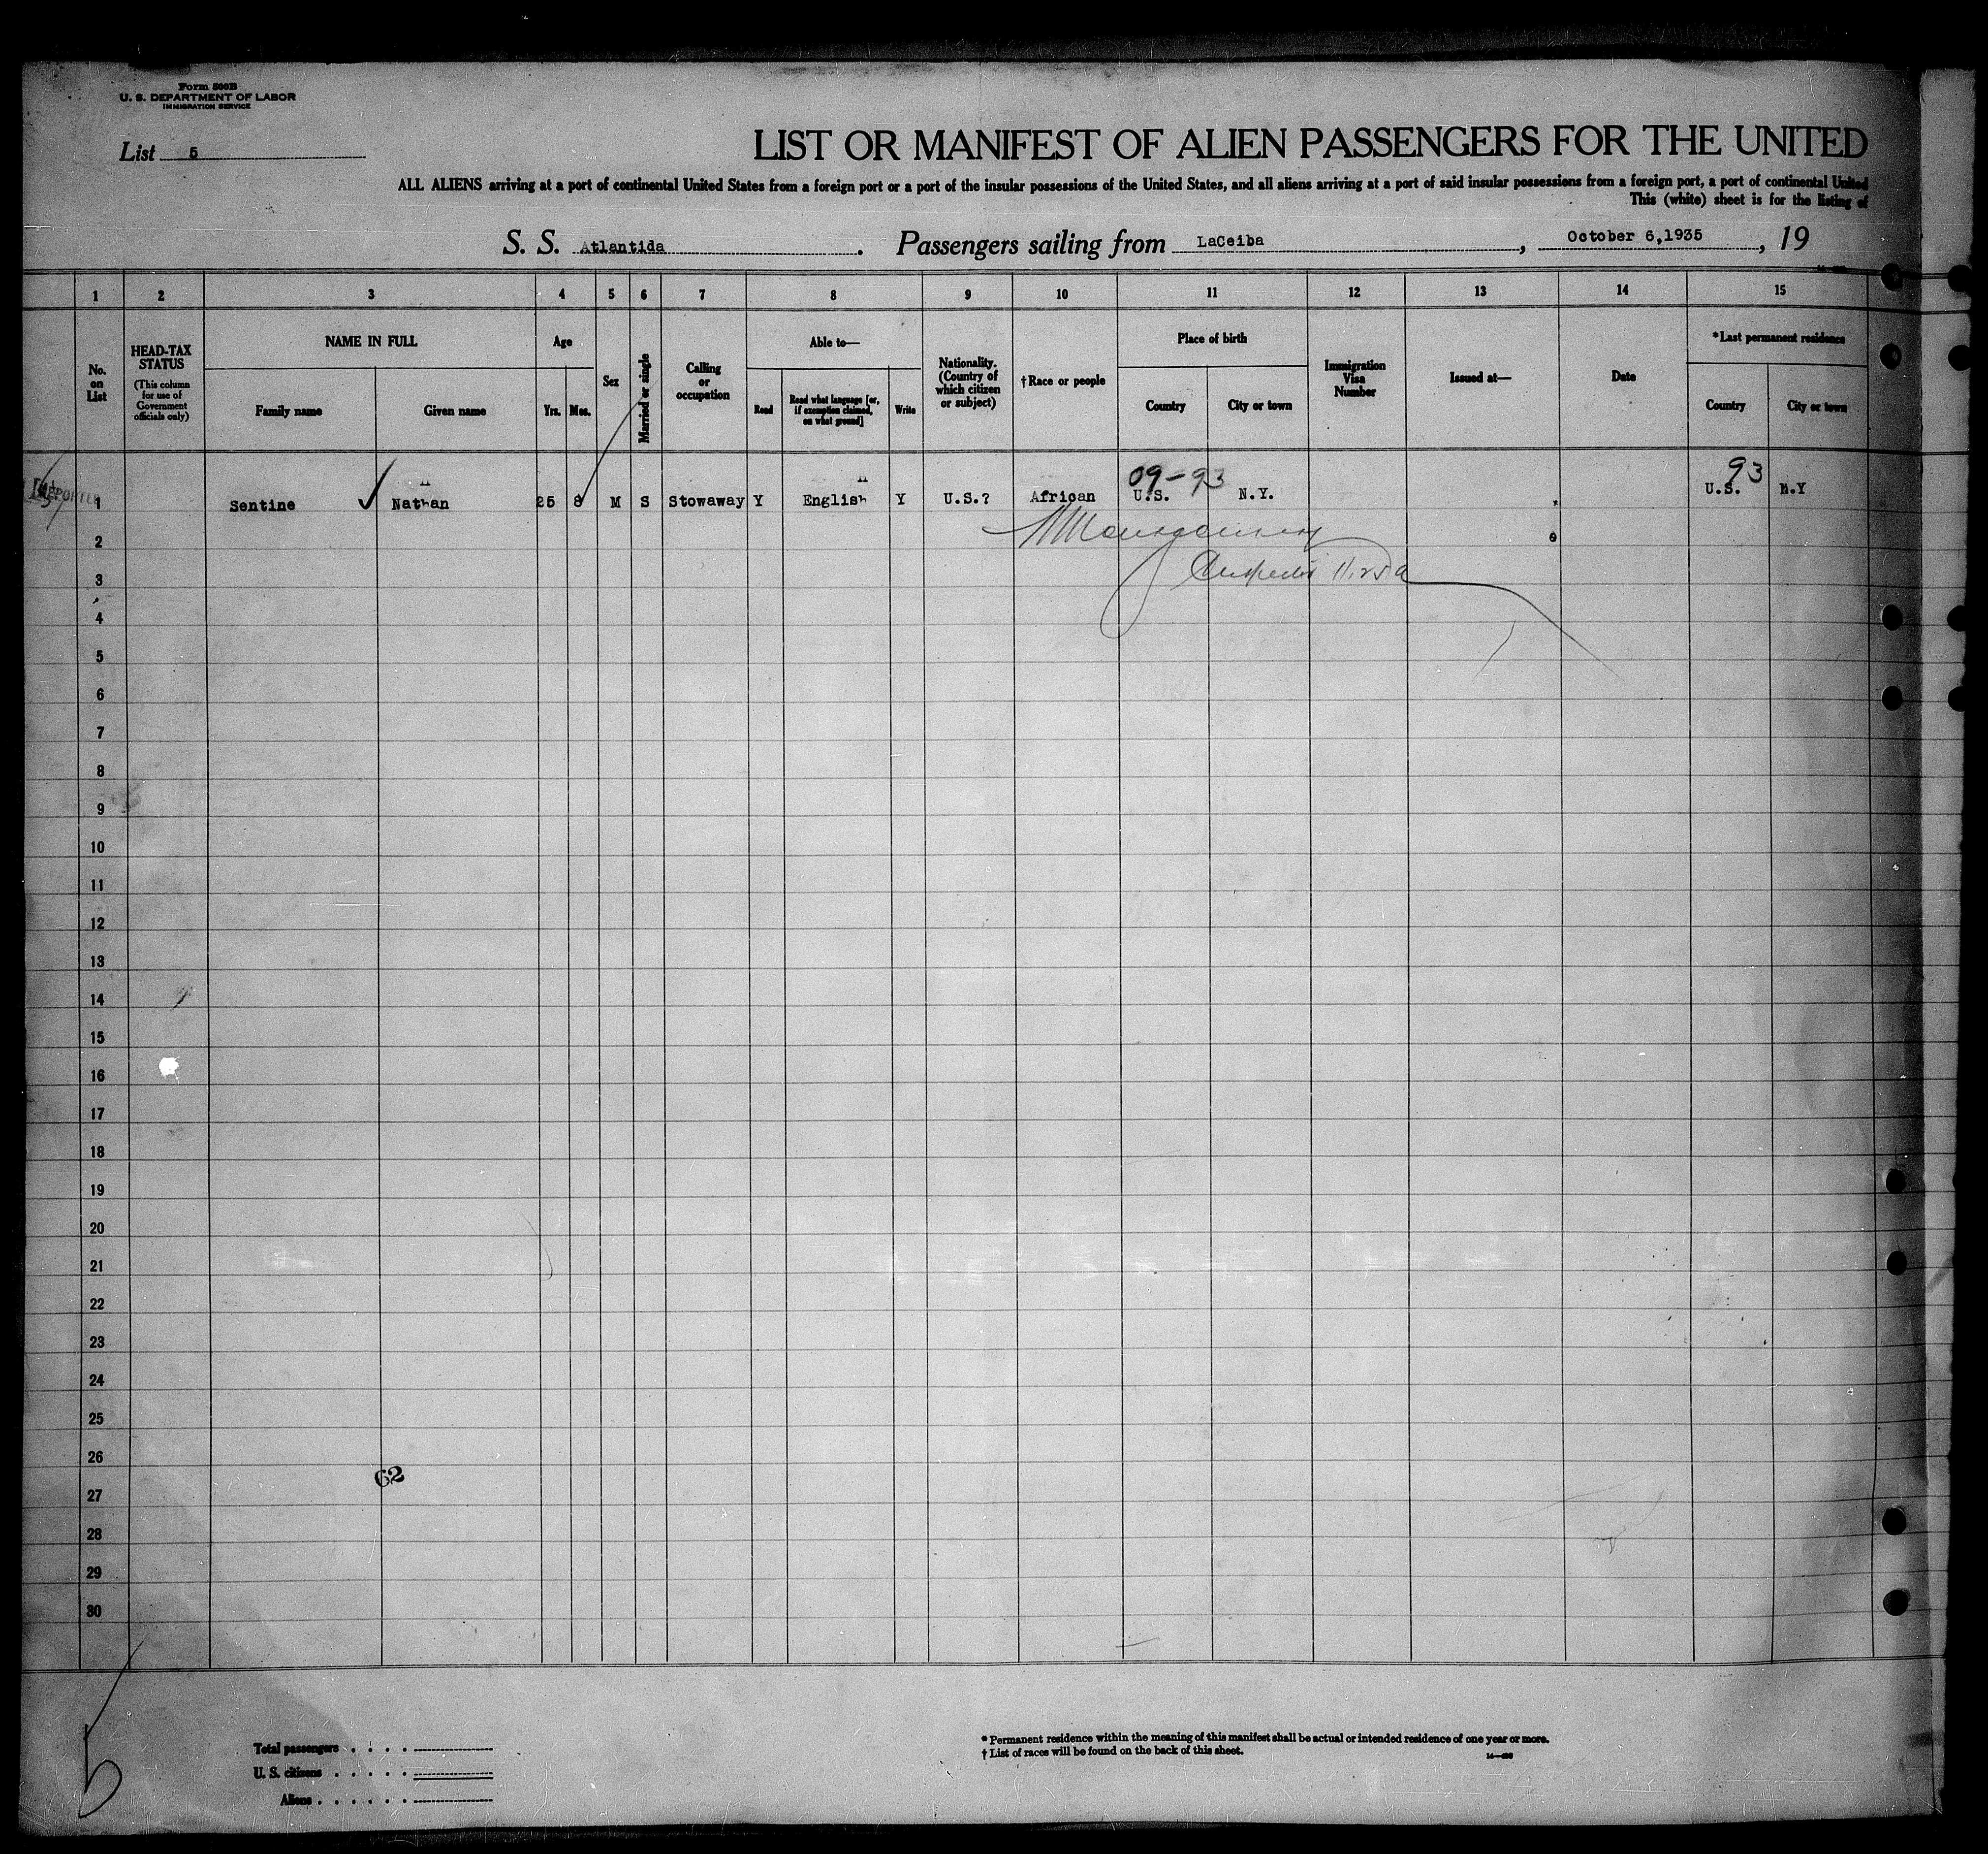 Form 500B
U. S. DEPARTMENT OF LABOR
IMMIGRATION SERVICE
List 5
LIST OR MANIFEST OF ALIEN PASSENGERS FOR THE UNITED
ALL ALIENS arriving at a port of continental United States from a foreign port or a port of the insular possessions of the United States, and all aliens arriving at a port of said insular possessions from a foreign port, a port of continental United
This (white) sheet is for the listing of
S. S. Atlantida. Passengers sailing from LaCeiba, October 6,1935, 19
1 2 3 4 5 6 7 8 9 10 11 12 13 14 15
No. on List
HEAD-TAX STATUS
(This column for use of Government officials only)
NAME IN FULL
Family name
Given name
Age
Yrs.
Mos.
Sex
Married or single
Calling or occupation
Able to—
Read
Read what language [or, if exemption claimed, on what ground]
Write
Nationality. (Country of which citizen or subject)
†Race or people
Place of birth
Country
City or town
Immigration Visa Number
Issued at—
Date
*Last permanent residence
Country
City or town
09-93
93
1 Sentine Nathan 25 8 M S Stowaway Y English Y U.S.? African U.S. N.Y. U.S. N.Y
2
3
4
5
6
7
8
9
10
11
12
13
14
15
16
17
18
19
20
21
22
23
24
25
26
62
27
28
29
30
5
Total passengers
U. S. citizens
Aliens
* Permanent residence within the meaning of this manifest shall be actual or intended residence of one year or more.
† List of races will be found on the back of this sheet.